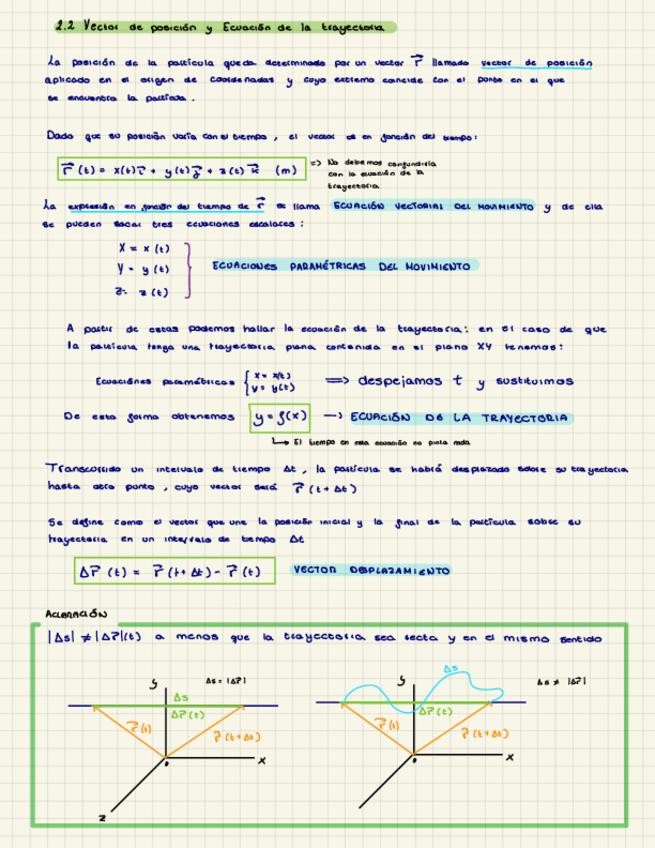 2.2 Vector de posición y Ecuación de la trayectoria
La posición de la partícula queda determinada por un vector r⃗ llamado vector de posición
aplicado en el origen de coordenadas y cuyo extremo coincide con el punto en el que
se encuentra la partícula.
Dado que su posición varía con el tiempo, el vector es en función del tiempo:
r⃗ (t) = x(t) i⃗ + y(t) j⃗ + z(t) k⃗ (m) => No debemos confundirla
con la ecuación de la
trayectoria
La expresión en función del tiempo de r⃗ se llama ECUACIÓN VECTORIAL DEL MOVIMIENTO y de ella
se pueden sacar tres ecuaciones escalares:
X = x(t)
Y = y(t)
Z = z(t)
ECUACIONES PARAMÉTRICAS DEL MOVIMIENTO
A partir de estas podemos hallar la ecuación de la trayectoria: en el caso de que
la partícula tenga una trayectoria plana contenida en el plano XY tenemos:
Ecuaciones paramétricas { x = x(t)
y = y(t) => despejamos t y sustituimos
De esta forma obtenemos y = f(x) → ECUACIÓN DE LA TRAYECTORIA
↳ El tiempo en esta ecuación no pinta nada
Transcurrido un intervalo de tiempo Δt, la partícula se habrá desplazado sobre su trayectoria
hasta otro punto, cuyo vector será r⃗ (t + Δt)
Se define como el vector que une la posición inicial y la final de la partícula sobre su
trayectoria en un intervalo de tiempo Δt
Δr⃗ (t) = r⃗ (t + Δt) - r⃗ (t) VECTOR DESPLAZAMIENTO
ACLARACIÓN
|Δs| ≠ |Δr⃗|(t) a menos que la trayectoria sea recta y en el mismo sentido
y Δs = |Δr⃗|
Δs
Δr⃗(t)
r⃗(t) r⃗(t+Δt)
0 x
z
y Δs Δs ≠ |Δr⃗|
Δr⃗(t)
r⃗(t) r⃗(t+Δt)
0 x